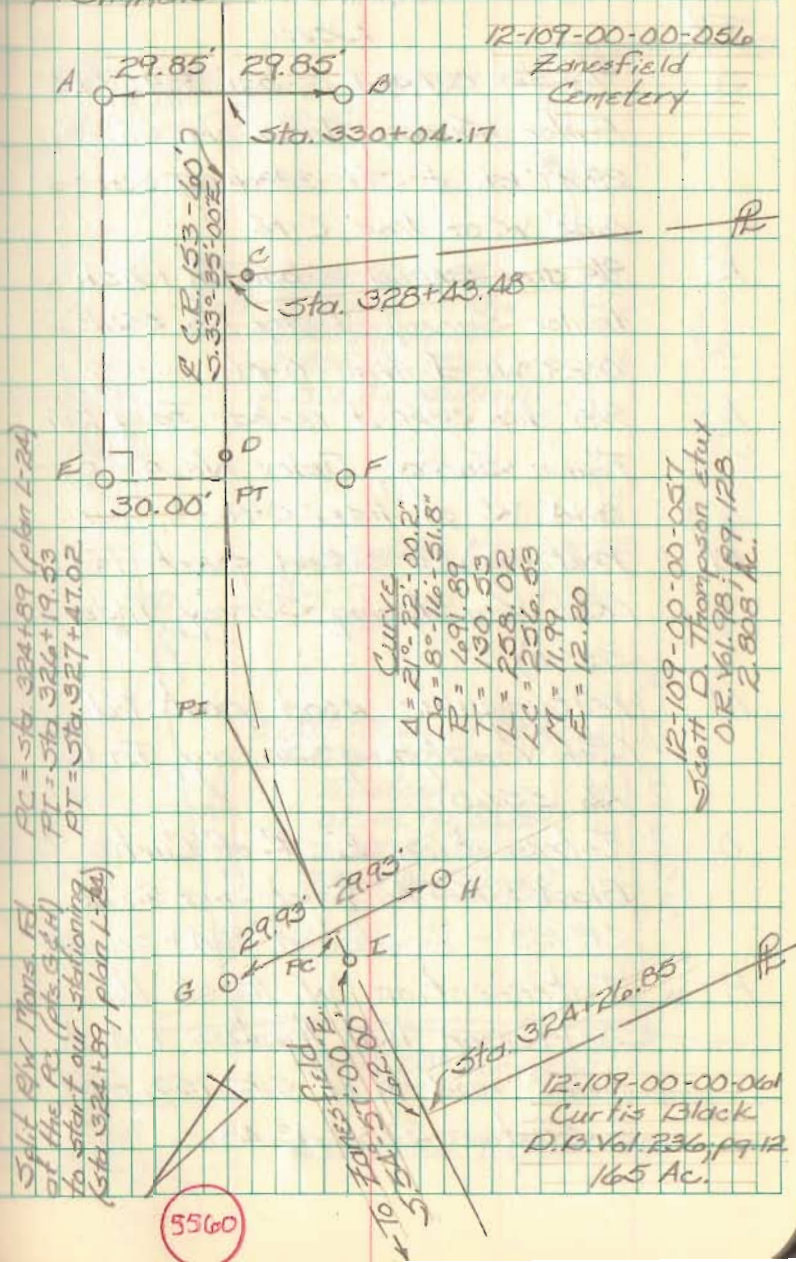 12-109-00-00-056
Zanesfield
Cemetery
29.85' 29.85'
A
B
Sta. 330+04.17
℄ C.R. 153-60'
S.33°-35'-00"E.
C
PL
Sta. 328+43.48
D
E
F
30.00'
PT
PC = Sta. 324+89 (plan L-24)
PI = Sta. 326+19.53
PT = Sta. 327+47.02
Curve
Δ = 21°-22'-00.2"
Da = 8°-16'-51.8"
R = 691.89
T = 130.53
L = 258.02
LC = 256.53
M = 11.99
E = 12.20
12-109-00-00-057
Scott D. Thompson etux
O.R. Vol. 98, pg. 128
2.808 Ac.
PI
29.93' 29.93'
H
G
PC
I
Split R/W Mons. Fd
at the PC (pts G & H)
to start our stationing
(sta 324+89, plan L-24)
PL
Sta. 324+26.85
To Zanesfield
62.00'
12-109-00-00-061
Curtis Black
D.B. Vol. 236, pg-12
165 Ac.
5560